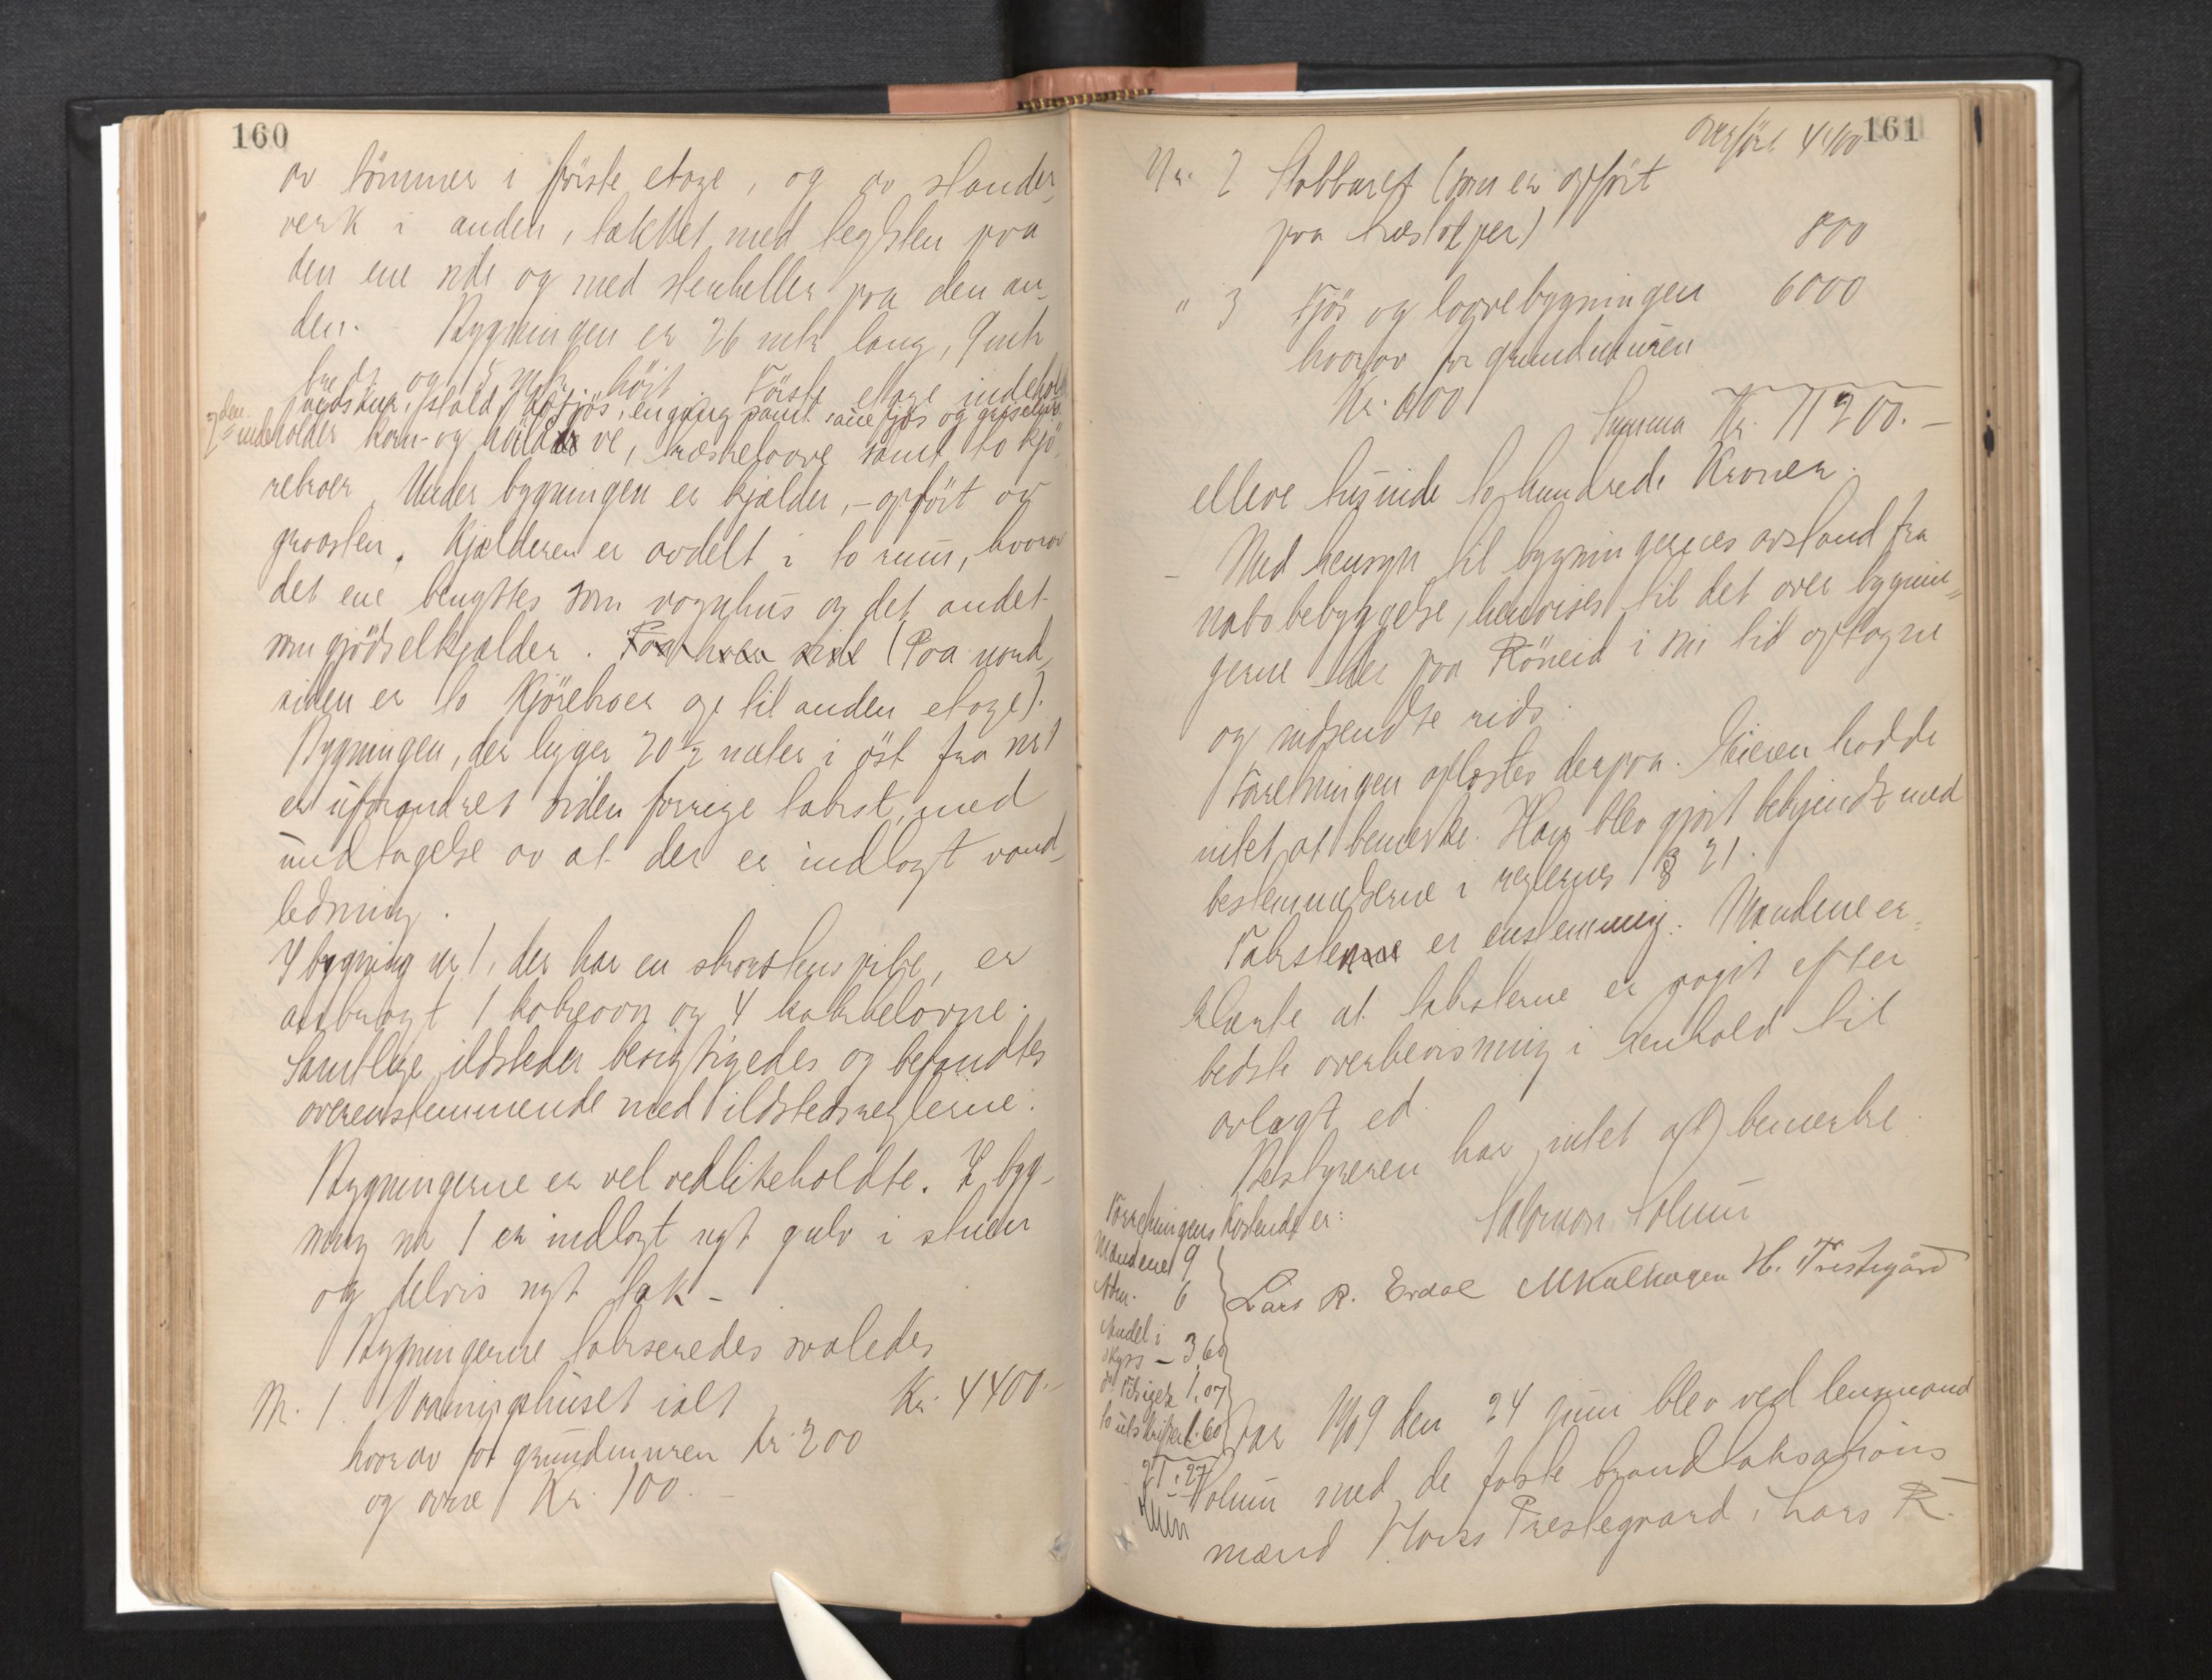 160
av tömmer i förste etage, og av stander-
verk i anden, takket med teglsten paa
den ene side og med stenheller paa den an-
den. Bygningen er 26 mtr lang, 9 mtr
bred og 5 mtr. höit. Förste etage indehol
stald, kofjös, en gang samt sauefjös og
2den indeholder korn- og ve, træskelaave samt to kjö-
rebroer. Under bygningen er kjælder, - opfört av
graasten. Kjælderen er avdelt i to rum, hvorav
det ene benyttes som vognhus og det andet
som gjödselkjælder. (Paa nord-
siden er to kjörebroer op til anden etage).
Bygningen, der ligger 20½ meter i öst fra nr 1
er uforandret siden forrige takst, med
undtagelse av at der er indlagt vand-
ledning.
I bygning nr 1, der har en skorstenspibe, er
anbragt 1 kokeovn og 4 kakkelovne.
Samtlige ildsteder besigtigedes og befandtes
overensstemmende med ildstedsreglerne.
Bygningerne er vel vedlikeholdte. I byg-
ning nr 1 er indlagt nyt gulv i stuen
og delvis nyt tak -
Bygningerne takseredes saaledes
Nr. 1. Vaaningshuset ialt Kr. 4400.-
hvorav for grundmuren kr. 200
og ovne Kr. 100. -
161
Overfört 4400
Nr. 2 Stabburet (som er opfört
paa træstolper) 800
" 3 Fjös og laavebygningen 6000
hvorav for grundmuren
Kr. 600
Summa Kr. 11200. -
elleve tusinde tohundrede Kroner.
- Med hensyn til bygningernes avstand fra
nabobebyggelse, henvises til det over bygnin-
gerne her paa Röneid i sin tid optagne
og indsendte rids.
Forretningen oplæstes derpaa. Eieren hadde
intet at bemerke. Han blev gjort bekjendt med
bestemmelserne i reglernes § 21.
Taksten er enstemmig. Mændene er-
klærte at taksterne er avgit efter
bedste overbevisning i henhold til
avlagt ed.
Bestyreren har intet at bemerke.
Salomon Solum
Forretningens kostende er:
Mændene 9
6
Andel i
skyss - 3 60
1.07
to utskrifter 1.60
21.27
Lars R. Erdal M Kalhagen H. Prestegård
Aar 1909 den 24 juni blev ved lensmand
Solum med de faste brandtaksations
mænd Hans Prestegaard, Lars R.